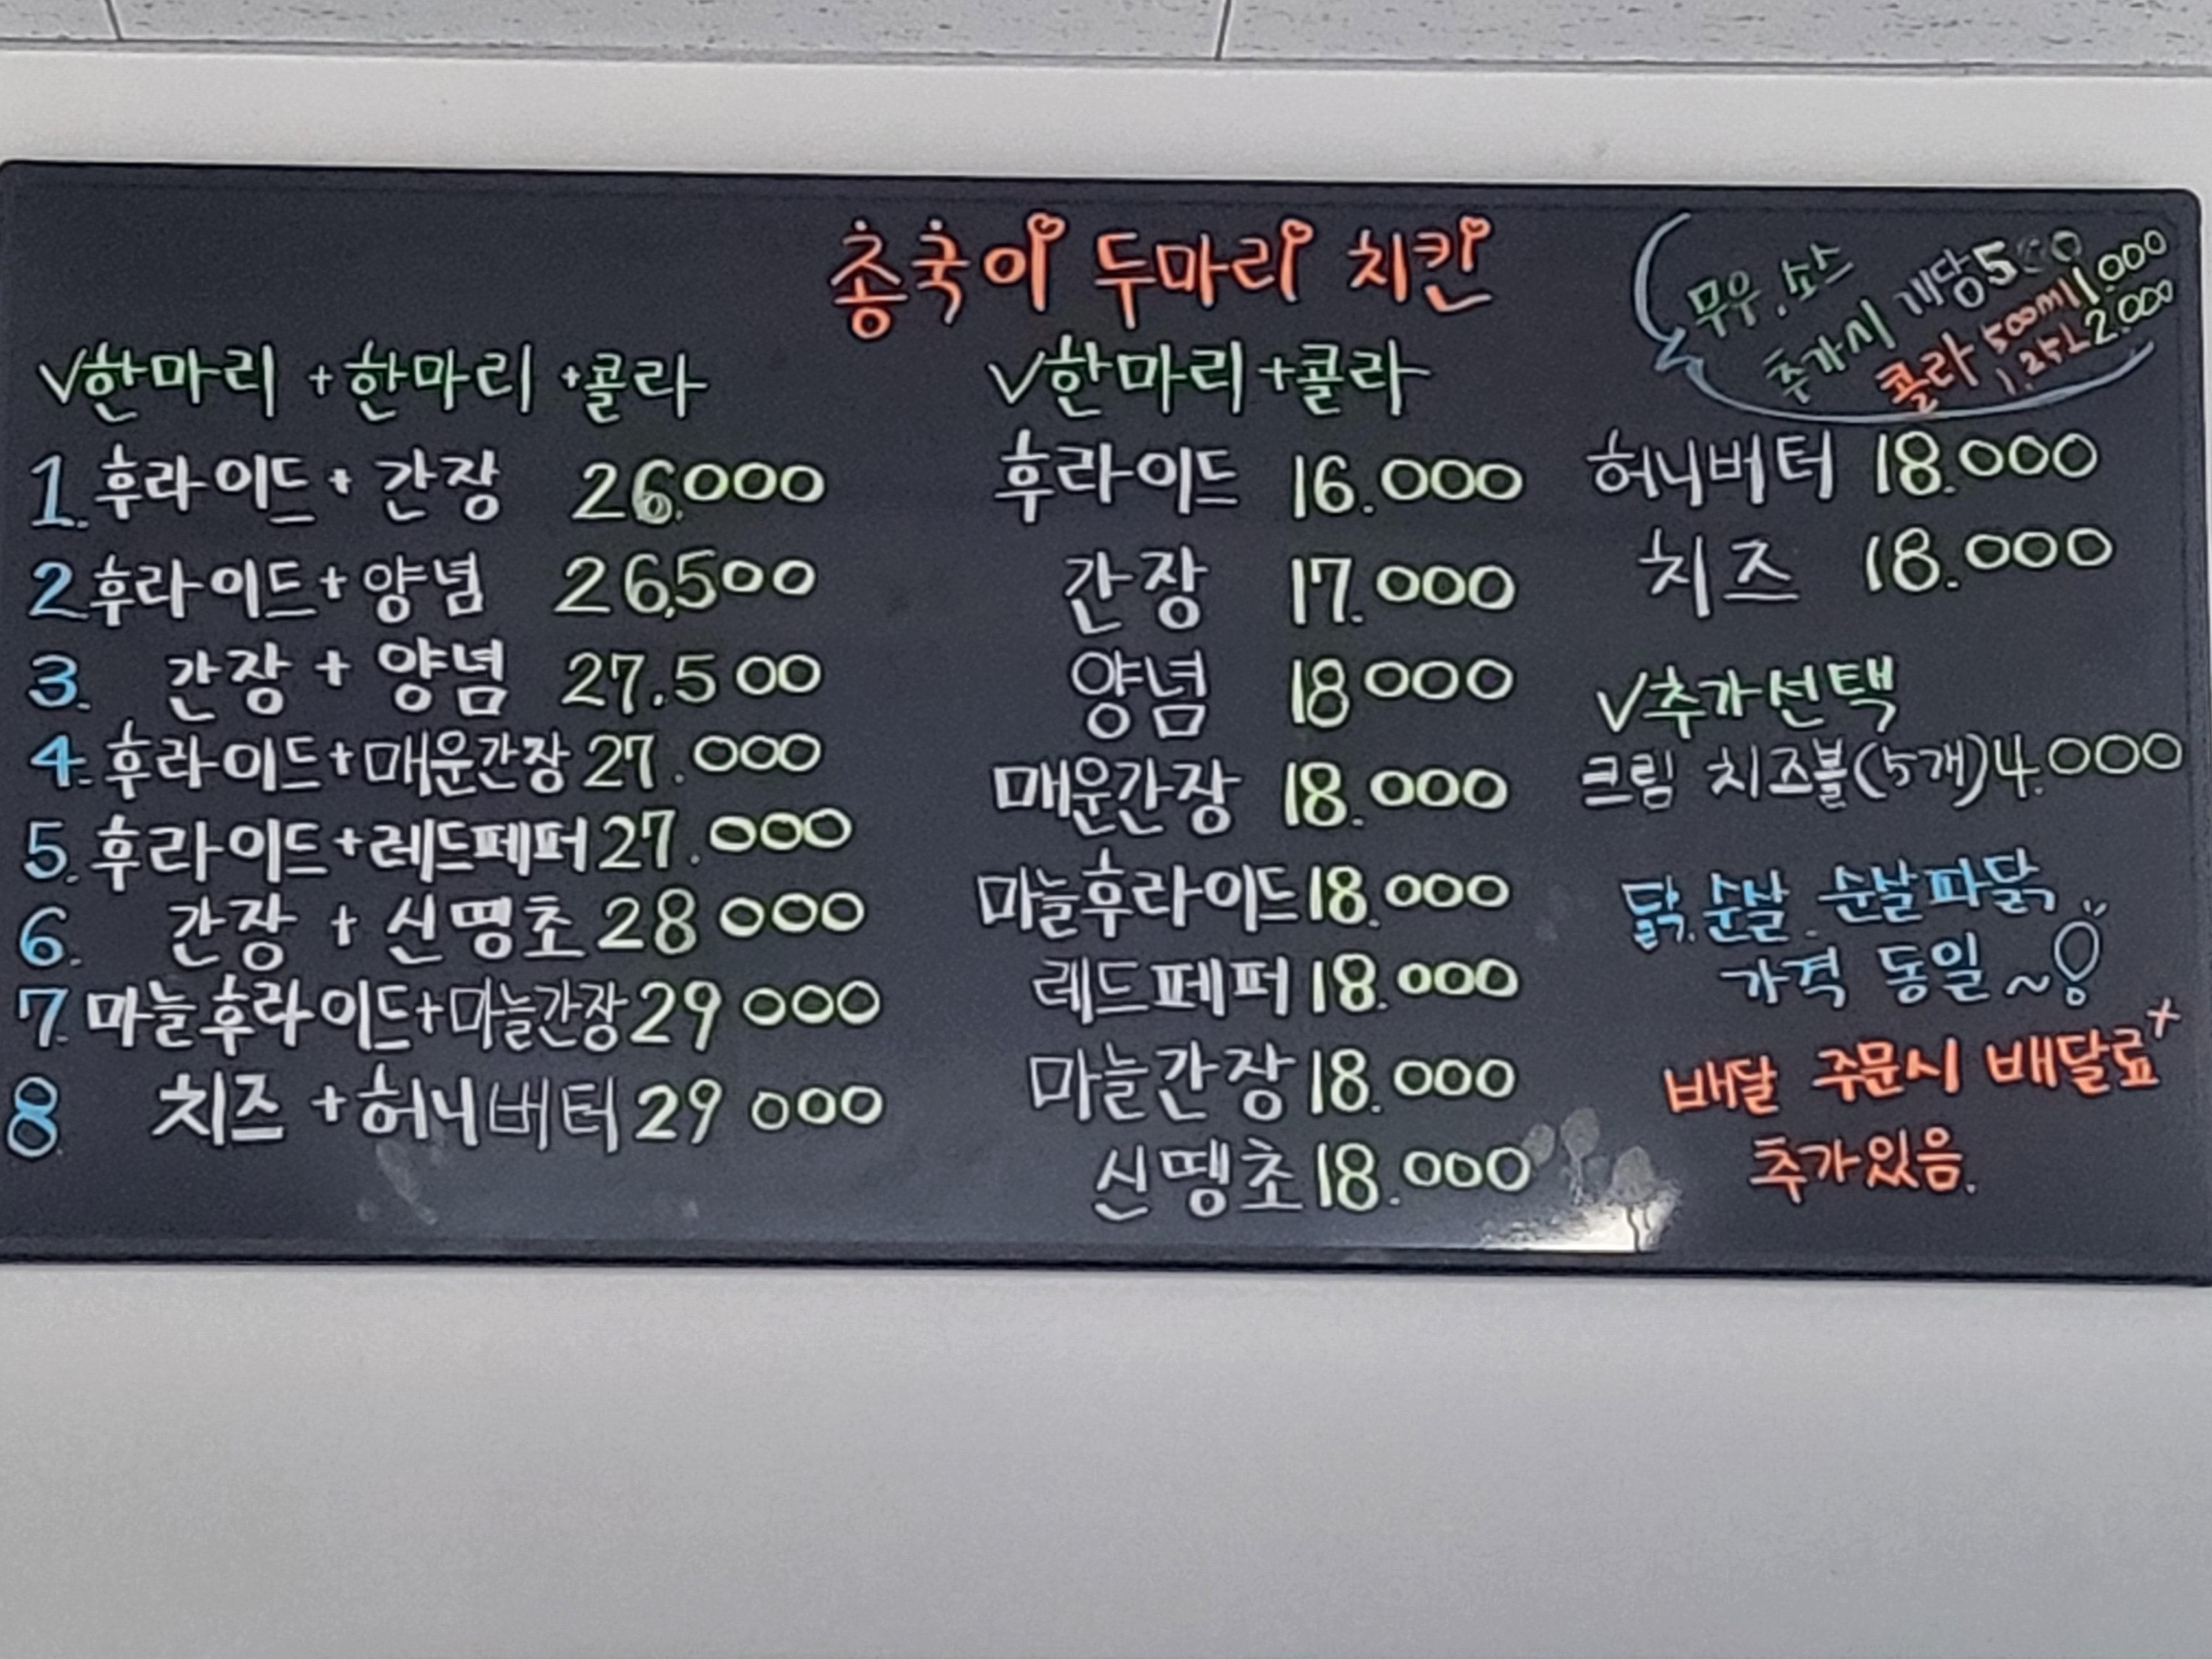 총국이 두마리 치킨
무우.소스
추가시 개당500
콜라 500ml 1.000
1.25L 2.000
√한마리 +한마리 +콜라
1. 후라이드+ 간장 26.000
2. 후라이드+양념 26,500
3. 간장 + 양념 27.500
4. 후라이드+매운간장 27.000
5. 후라이드+레드페퍼 27.000
6. 간장 + 신땡초 28 000
7. 마늘후라이드+마늘간장 29 000
8. 치즈 +허니버터 29 000
√한마리+콜라
후라이드 16.000
간장 17.000
양념 18000
매운간장 18.000
마늘후라이드 18.000
레드페퍼 18.000
마늘간장 18.000
신땡초 18.000
허니버터 18.000
치즈 18.000
√추가선택
크림 치즈볼(5개) 4.000
닭.순살. 순살파닭
가격 동일~!
배달 주문시 배달료+
추가있음.